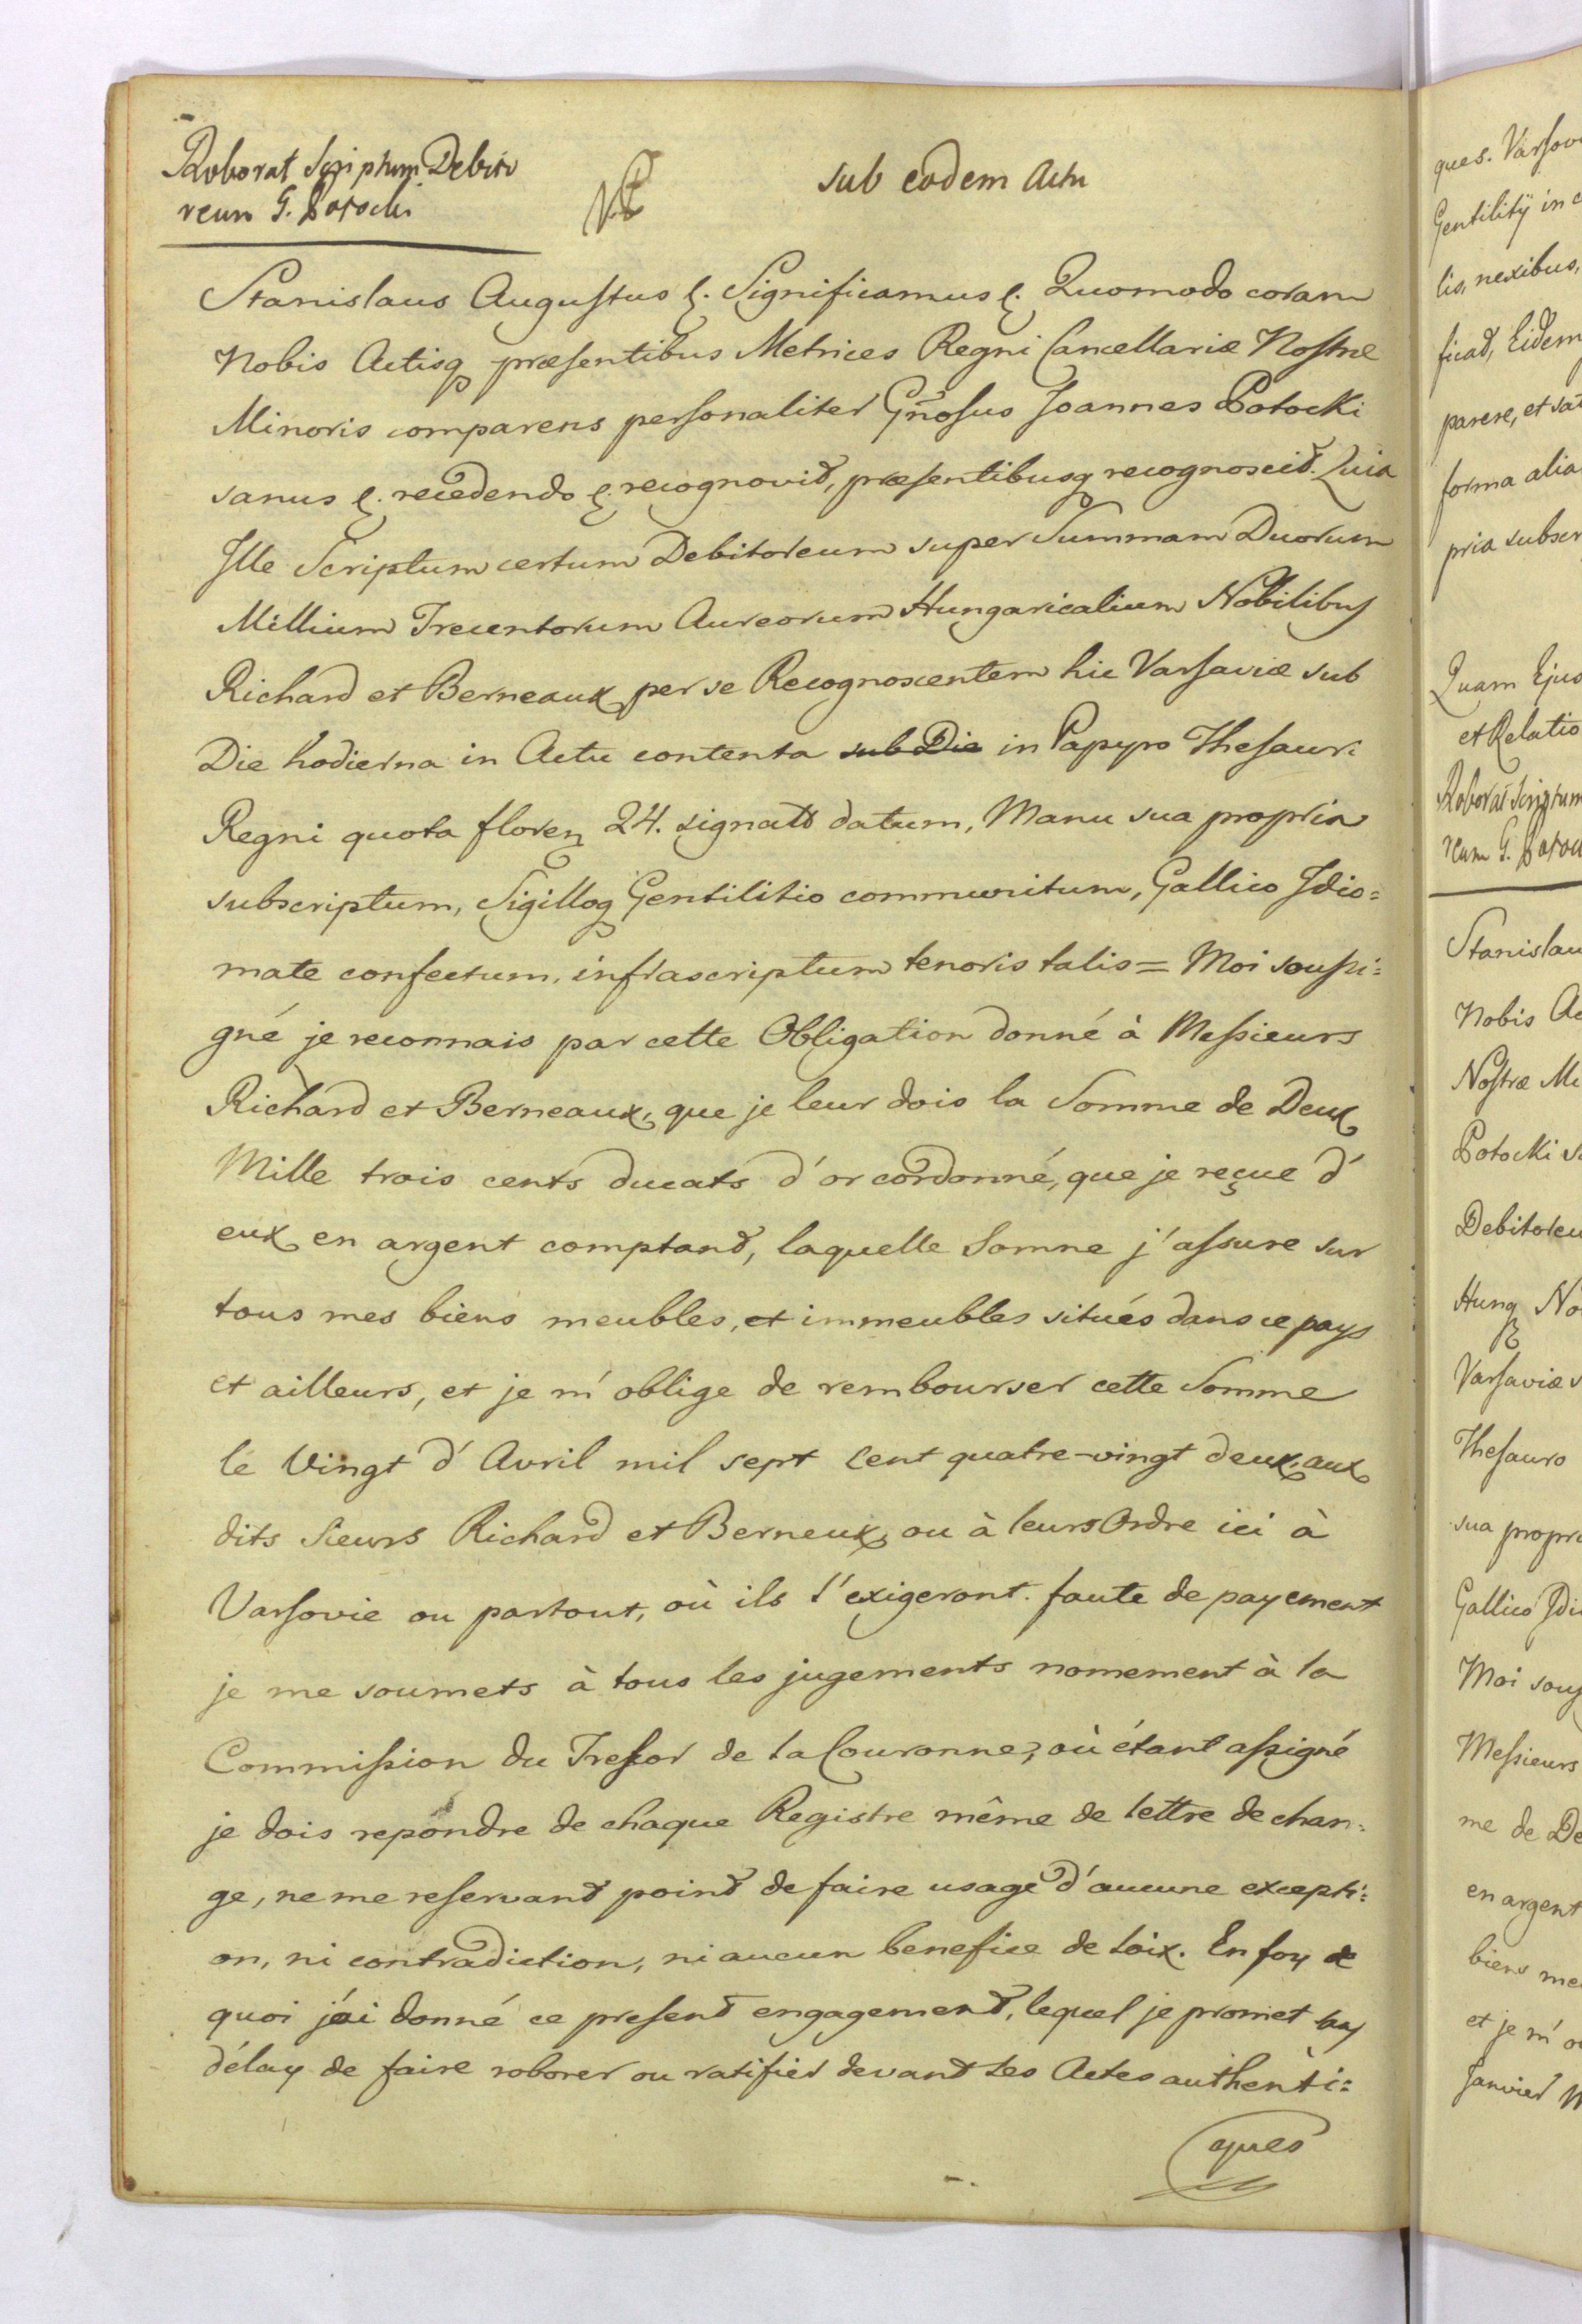 Roborat Scriptum Debito
reum G. Potocki
sub eodem Actu
Stanislaus Augustus &. Significamus &. Quomodo coram
Nobis Actisq præsentibus Metrices Regni Cancellariæ Nostræ
Minoris comparens personaliter Gñosus Joannes Potocki
sanus &. recedendo &. recognovit, præsentibusq recognoscit. Quia
Ille Scriptum certum Debitoreum super Summam Duorum
Millium Trecentorum Aureorum Hungaricalium Nobilibus
Richard et Berneaux per se Recognoscentem hic Varsaviæ sub
Die hodierna in Actu contenta sub Die in Papyro Thesauri
Regni quota floren 24. signato datum, Manu sua propria
subscriptum, Sigilloq Gentilitio communitum, Gallico Idio=
mate confectum, infrascriptum tenoris talis = Moi soussi=
gné je reconnais par cette Obligation donné à Messieurs
Richard et Berneaux, que je leur dois la Somme de Deux
Mille trois cents ducats d'or cordonné, que je reçue d'
eux en argent comptant, laquelle Somne j'assure sur
tous mes biens meubles, et immeubles situés dans ce pays
et ailleurs, et je m'oblige de rembourser cette Somme
le Vingt d'Avril mil sept Cent quatre-vingt deux, aux
dits Sieurs Richard et Berneux, ou à leurs Ordre ici à
Varsovie ou partout, où ils l'exigeront. faute de payement
je me soumets à tous les jugements nomement à la
Commission du Tressor de la Couronne, où étant assigné
je dois repondre de chaque Registre même de lettre de chan=
ge, ne me reservant point de faire usage d'aucune excepti=
on, ni contradiction, ni aucun benefice de loix. En foy de
quoi j'ai donné ce present engagement, lequel je promet
délay de faire roborer ou ratifier devant les Actes authenti=
ques
ques. Varsov
Gentilitÿ in c
lis, nexibus,
ficat, Eidem
parere, et sat
forma alia
pria subscr
Quam Ejus
et Relatio
Roborat Scriptum
reum G. Potoc
Stanislau
Nobis Ac
Nostræ Mi
Potocki sa
Debitoreu
Hung No
Varsaviæ s
Thesauro
sua propri
Gallico Idi
Moi sous
Messieurs
me de De
en argent
biens me
et je m'o
Janvier M